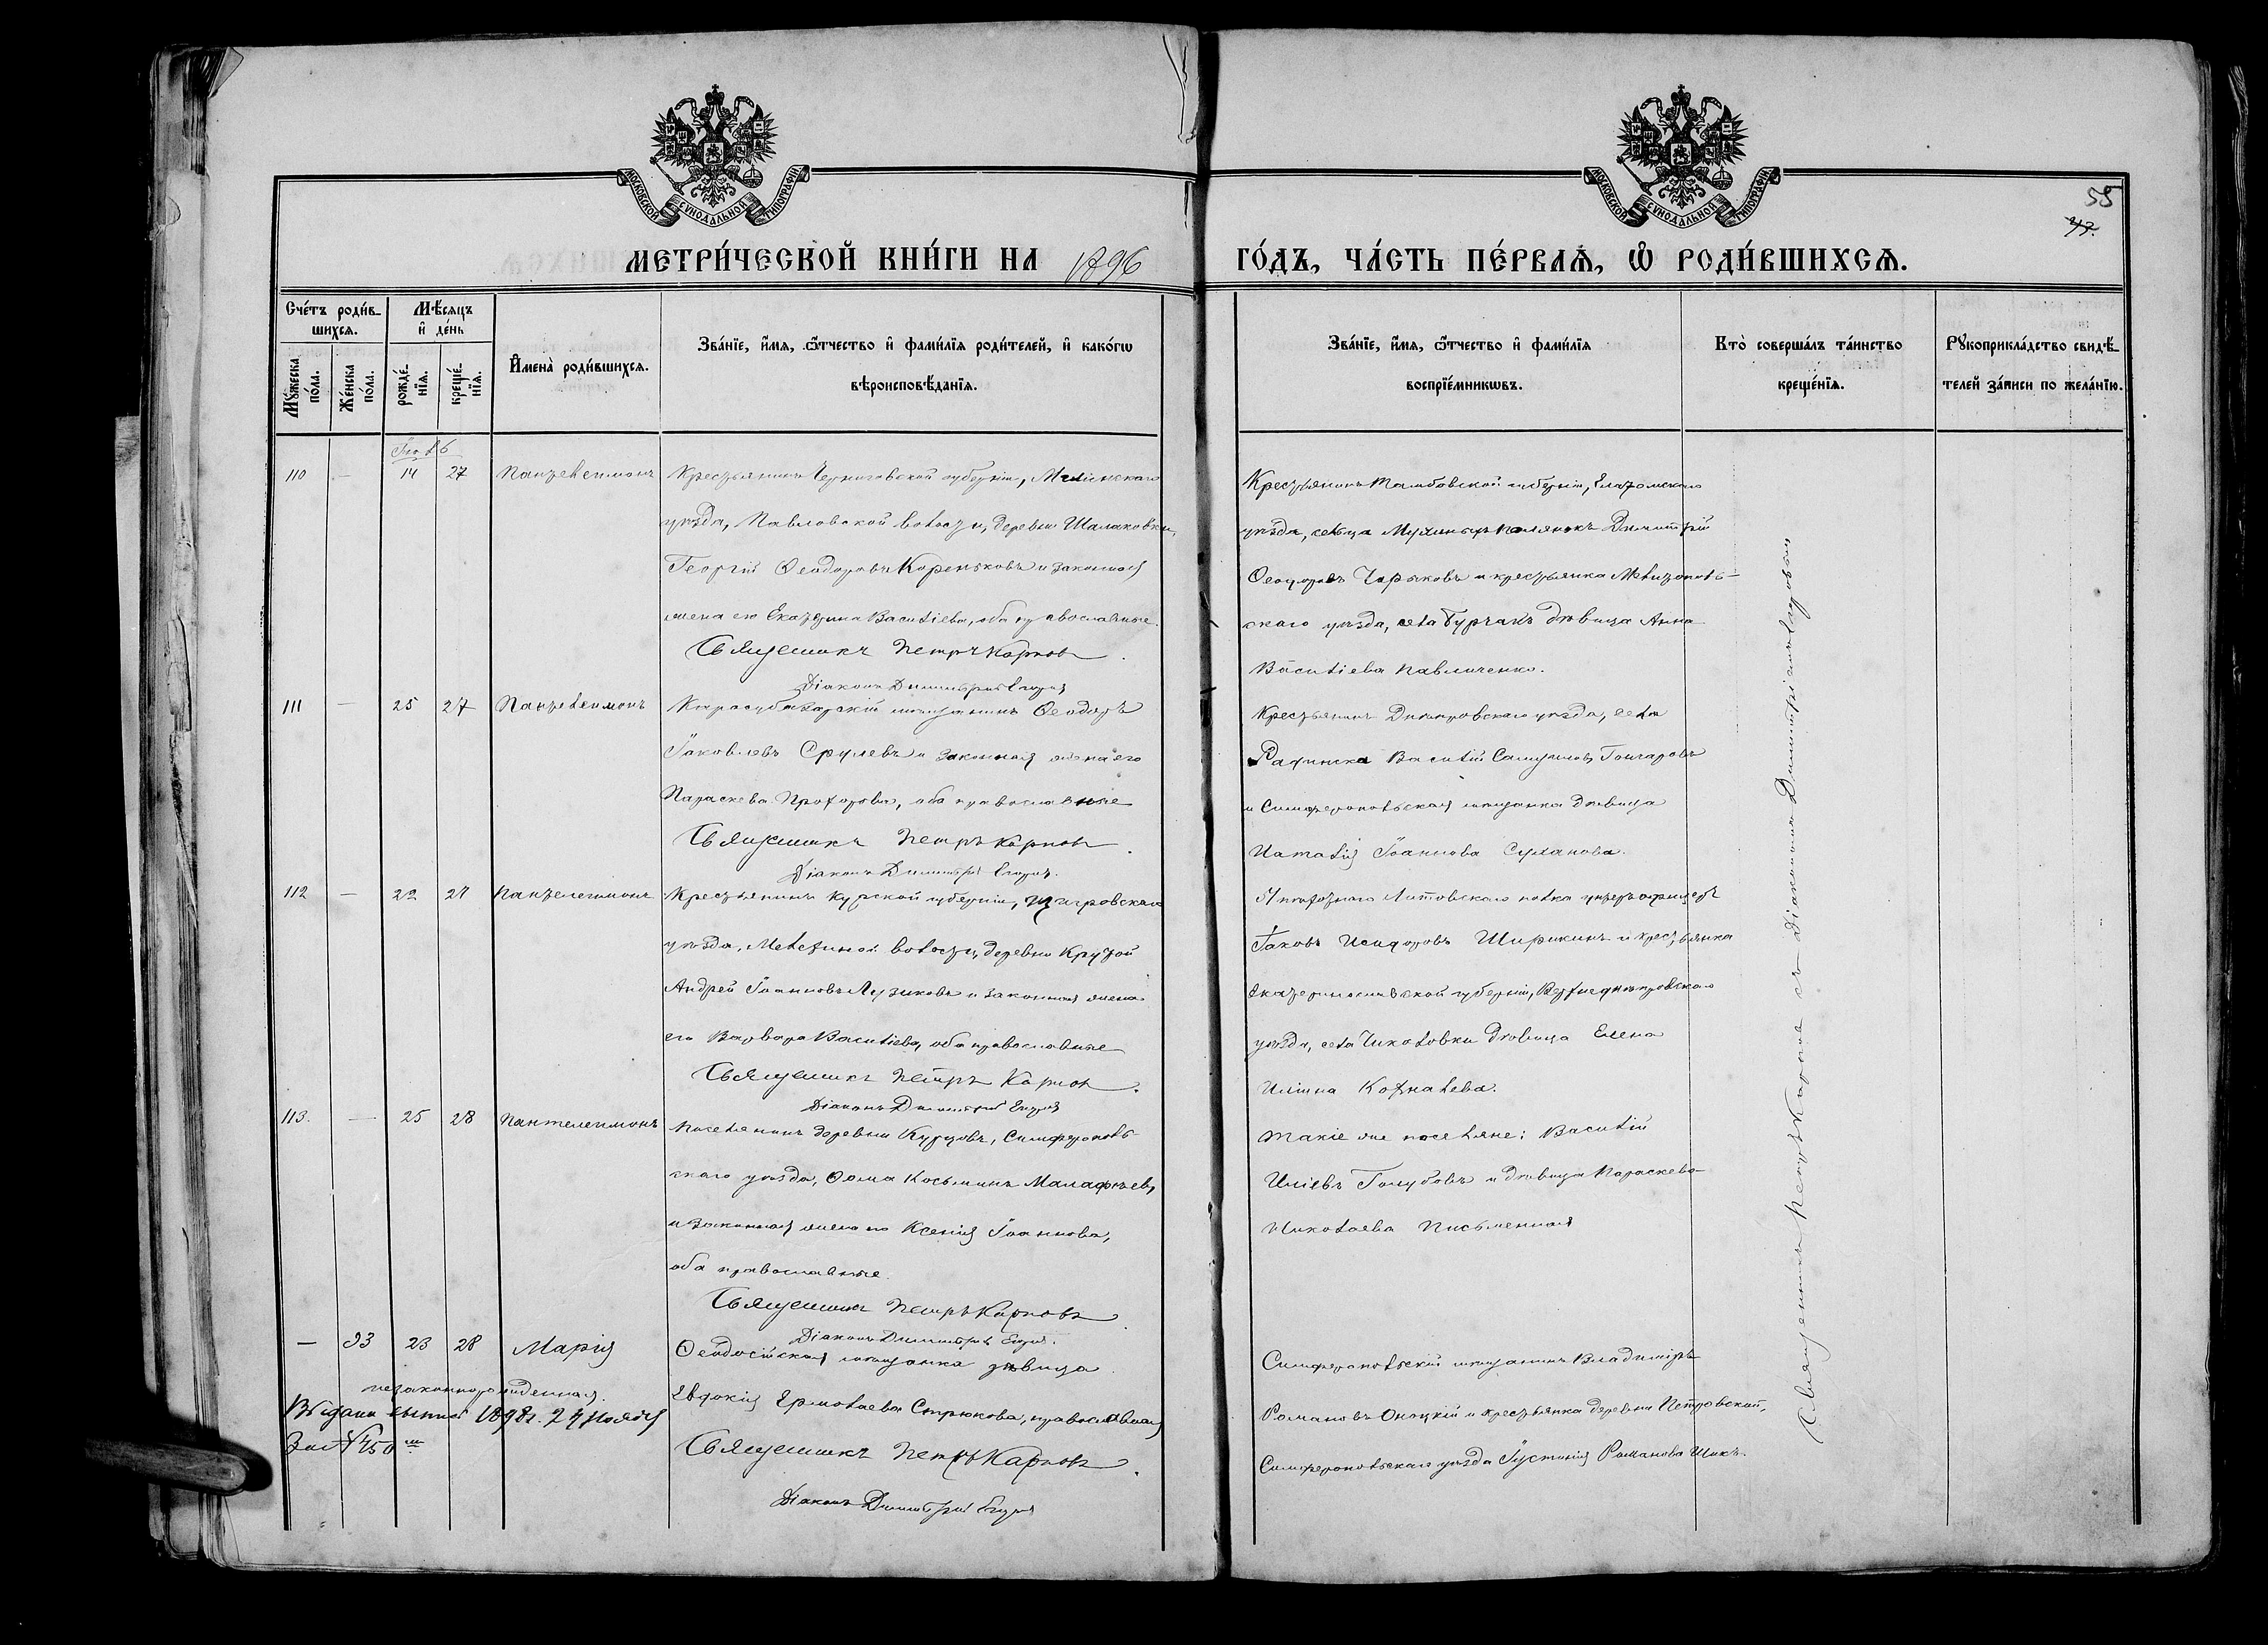 МОСКОВСКОЙ СѴНОДАЛЬНОЙ ТИПОГРАФІИ
МОСКОВСКОЙ СѴНОДАЛЬНОЙ ТИПОГРАФІИ
55
МЕТРИ́ЧЕСКОЙ КНИ́ГИ НА 1896
ГО́ДЪ, ЧА́СТЬ ПЕ́РВАѦ, Ѽ РОДИ́ВШИХСѦ.
Сче́тъ роди́в-
шихсѧ.
Мѣсѧцъ
и҆ де́нь
Мꙋ́жеска
по́ла.
Же́нска
по́ла.
рожде́-
нїѧ.
креще́-
нїѧ.
И҆мена̀ роди́вшихсѧ.
Зва́нїе, и҆́мѧ, ѻ҆́тчество и҆ фами́лїѧ роди́телей, и҆ како́гѡ
вѣроисповѣ́данїѧ.
Зва́нїе, и҆́мѧ, ѻ҆́тчество и҆ фами́лїѧ
воспрїе́мникѡвъ.
Кто̀ соверша́лъ та́инство
креще́нїѧ.
Рꙋкоприкла́дство свидѣ́-
телей за́писи по жела́нїю.
110 — 14 27 Пантелеимонъ Крестьянинъ Черниговской губерніи, Мглинскаго
уѣзда, Павловской волости, деревни Шалаковки,
Георгій Ѳеодоровъ Кореньковъ и законная
жена его Екатерина Василіева, оба православные.
Священникъ Петръ Карпов
Діаконъ Димитрій
Крестьянинъ Тамбовской губерніи, Елатомскаго
уѣзда, сельца Полянокъ Димитрій
Ѳеодоровъ и крестьянка Мелитополь-
скаго уѣзда, села Бурчакъ дѣвица Анна
Василіева Павличенко.
111 — 25 27 Пантелеимонъ Карасубазарскій мѣщанинъ Ѳеодоръ
Іаковлевъ Срулевъ и законная жена его
Параскева Прохорова, оба православные
Священникъ Петръ Карпов
Діаконъ Димитрій
Крестьянинъ Днѣпровскаго уѣзда, села
Василій Самуиловъ Гончаровъ
и Симферопольская мѣщанка дѣвица
Наталія Іоаннова Суханова.
112 — 22 27 Пантелеимонъ Крестьянинъ Курской губерніи, Щигровскаго
уѣзда, волости, деревни Крутой
Андрей Іоанновъ Лузиковъ и законная жена
его Варвара Василіева, оба православные
Священникъ Петръ Карпов
Діаконъ Димитрій
51 пѣхотнаго Литовскаго полка унтеръ офицеръ
Іаковъ Исидоровъ Ширикинъ и крестьянка
Екатеринославской губерніи, Верхнеднѣпровскаго
уѣзда, села дѣвица Елена
Иліина
113. — 25 28 Пантелеимонъ Поселянинъ деревни Курцовъ, Симферополь-
скаго уѣзда, Ѳома Косьминъ Малафѣевъ
и законная жена его Ксенія Іоаннова,
оба православные.
Священникъ Петръ Карповъ
Діаконъ Димитрій
Такіе же поселяне: Василій
Иліевъ Голубовъ и дѣвица Параскева
Николаева Письменная
— 93 23 28 Марія
незаконнорожденная.
Ѳеодосійская мѣщанка дѣвица
Евдокія Ермолаева Стрюкова, православная
Священникъ Петръ Карпов
Діаконъ Димитрій
Симферопольскій мѣщанинъ Владиміръ
Романовъ и крестьянка деревни Петровской,
Симферопольскаго уѣзда Іустинія Романова
1898 г. 24 Ноября
За № 450
Священникъ Петръ Карповъ съ Діакономъ Димитріемъ